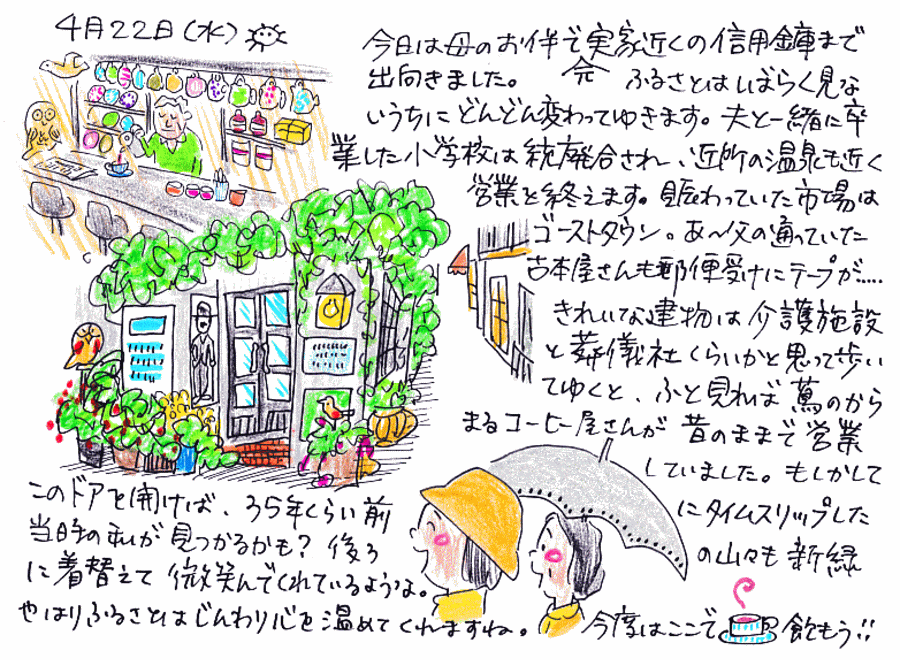 4月22日(水)
今日は母のお伴で実家近くの信用金庫まで
出向きました。 ふるさとはしばらく見な
いうちにどんどん変わってゆきます。夫と一緒に卒
業した小学校は統廃合され、近所の温泉も近く
営業を終えます。賑わっていた市場は
ゴーストタウン。あ〜父の通っていた
古本屋さんも郵便受けにテープが.....
きれいな建物は介護施設
と葬儀社くらいかと思って歩い
てゆくと、ふと見れば蔦のから
まるコーヒー屋さんが昔のままで営業
していました。もしかして
このドアを開けば、35年くらい前
にタイムスリップした
当時の私が見つかるかも? 後ろ
の山々も新緑
に着替えて微笑んでくれているような。
やはりふるさとはじんわり心を温めてくれますね。
今度はここで 飲もう!!